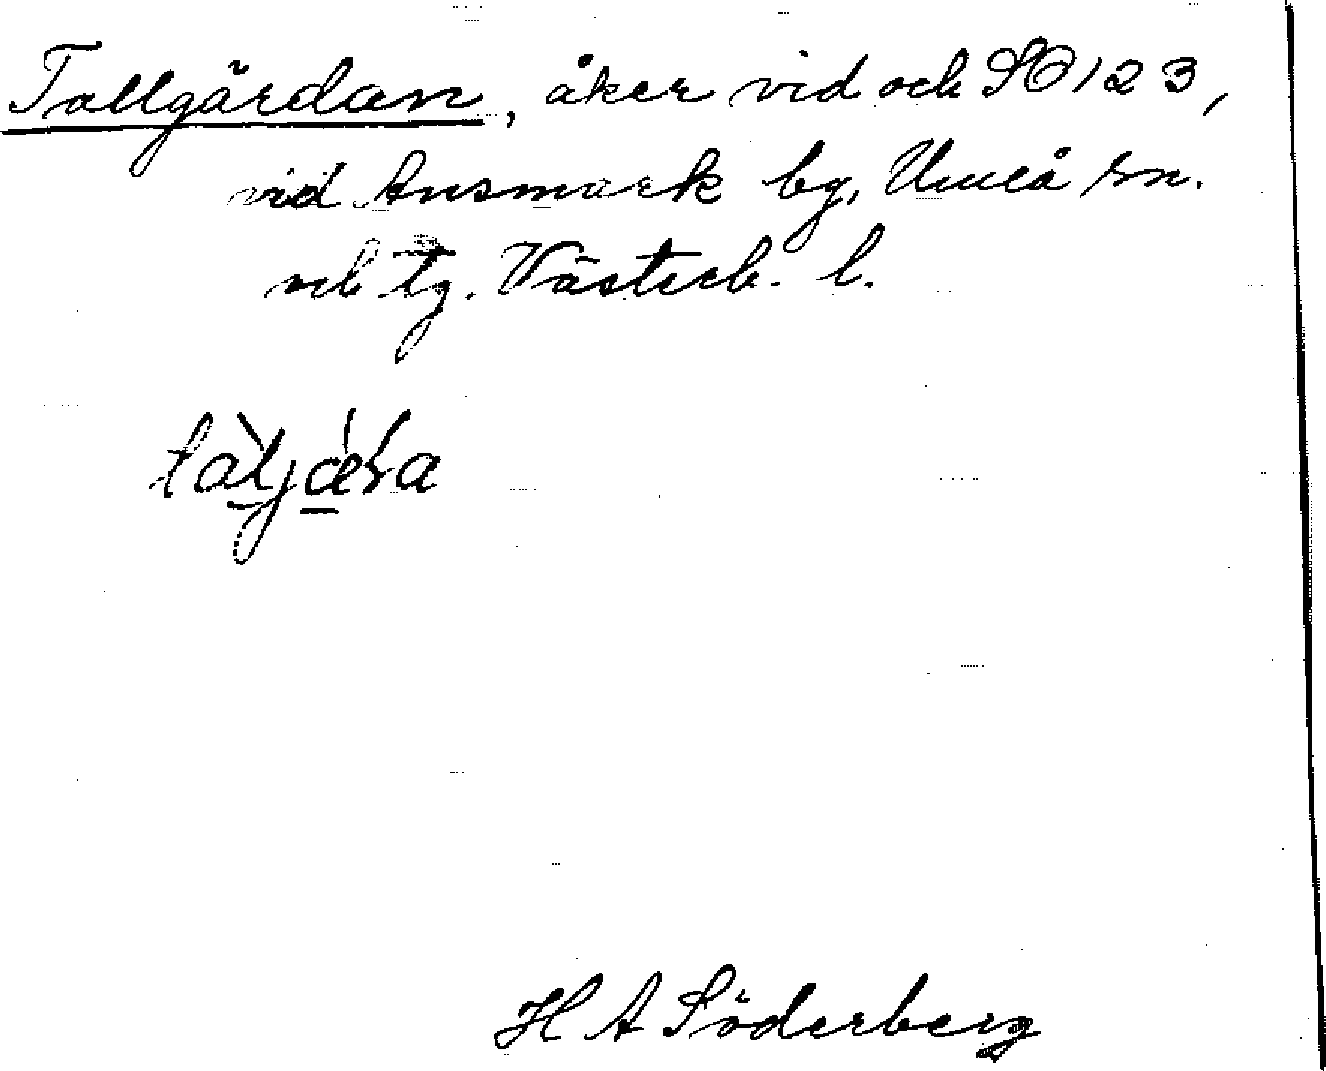 Tallgärdan, åker vid och SO 123,
vid Ansmark by, Umeå sn.
och tg. Västerb. l.
H A Söderberg